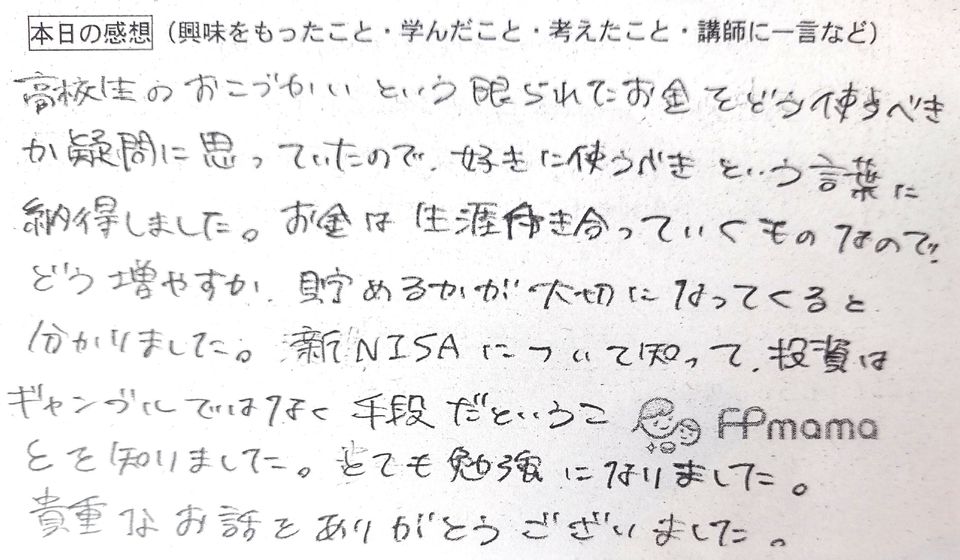 本日の感想（興味をもったこと・学んだこと・考えたこと・講師に一言など）
高校生のおこづかいという限られたお金をどう使うべき
か疑問に思っていたので、好きに使うべきという言葉に
納得しました。お金は生涯付き合っていくものなので、
どう増やすか、貯めるかが大切になってくると
分かりました。新NISAについて知って、投資は
ギャンブルではなく手段だというこ
FPmama
とを知りました。とても勉強になりました。
貴重なお話をありがとうございました。